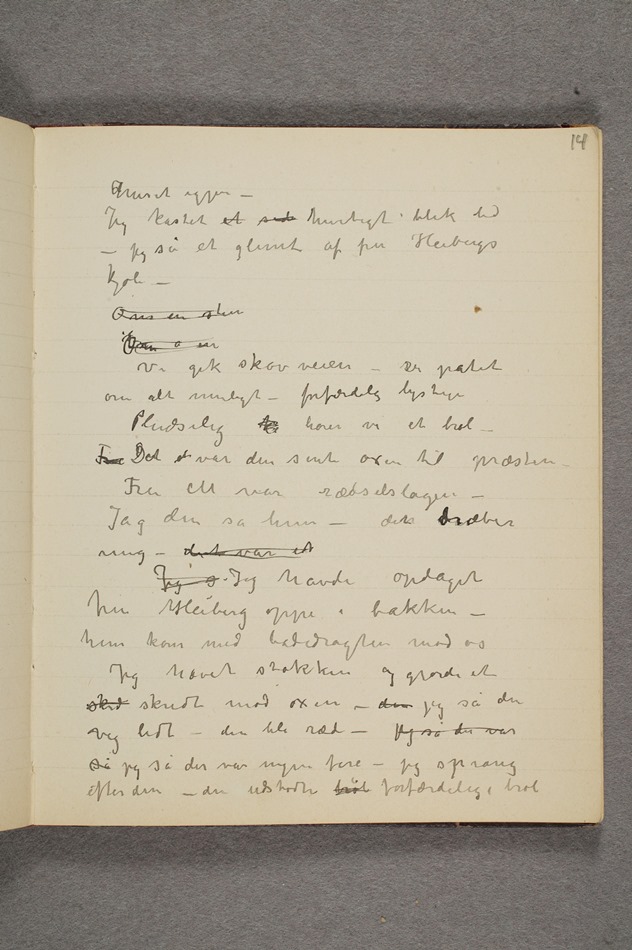 14
huset igjen —
Jeg kastet et sid hurtigt blik hid
— jeg så et glimt af fru Heibergs
kjole —
Ons en sten
Vi gik skovveien — der pratet
om alt muligt — forfærdelig lystige
Pludselig hører vi et brøl —
Fru Det var den sinte oxen til præsten —
Fru M var rædselslagen —
Jag den sa hun — den dræber
mig — det var et
Jeg s Jeg havde opdaget
fru Heiberg oppe i bakken —
hun kom med badedragten mod os
Jeg hævet stokken og gjorde et
skrid skridt mod oxen — den jeg så den
veg lidt — den ble ræd — Jeg så der var
så jeg så der var ingen fare — jeg sprang
efter den — den udstødte brøl forfærdelige brøl